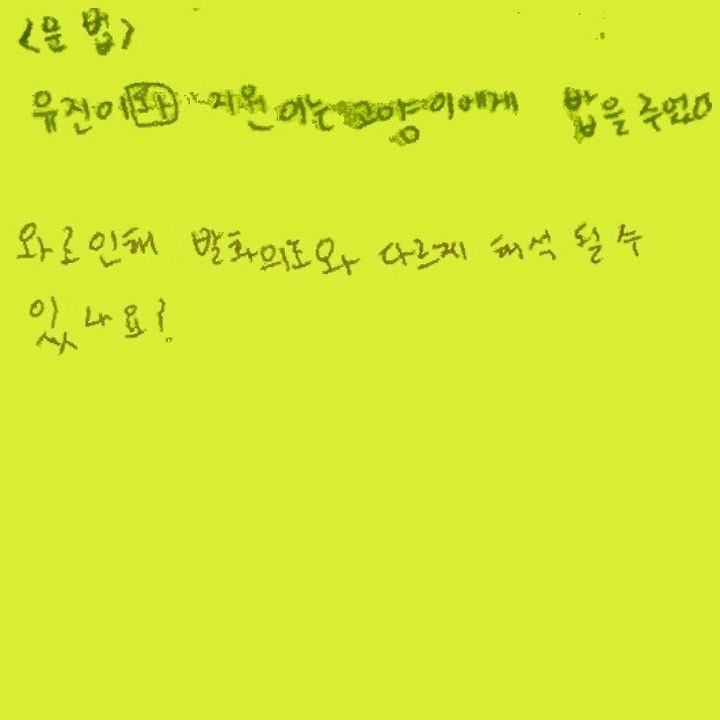 <문법>
유진이와 지원이는 고양이에게 밥을 주었어
와로 인해 발화의도와 다르게 해석 될 수
있나요?